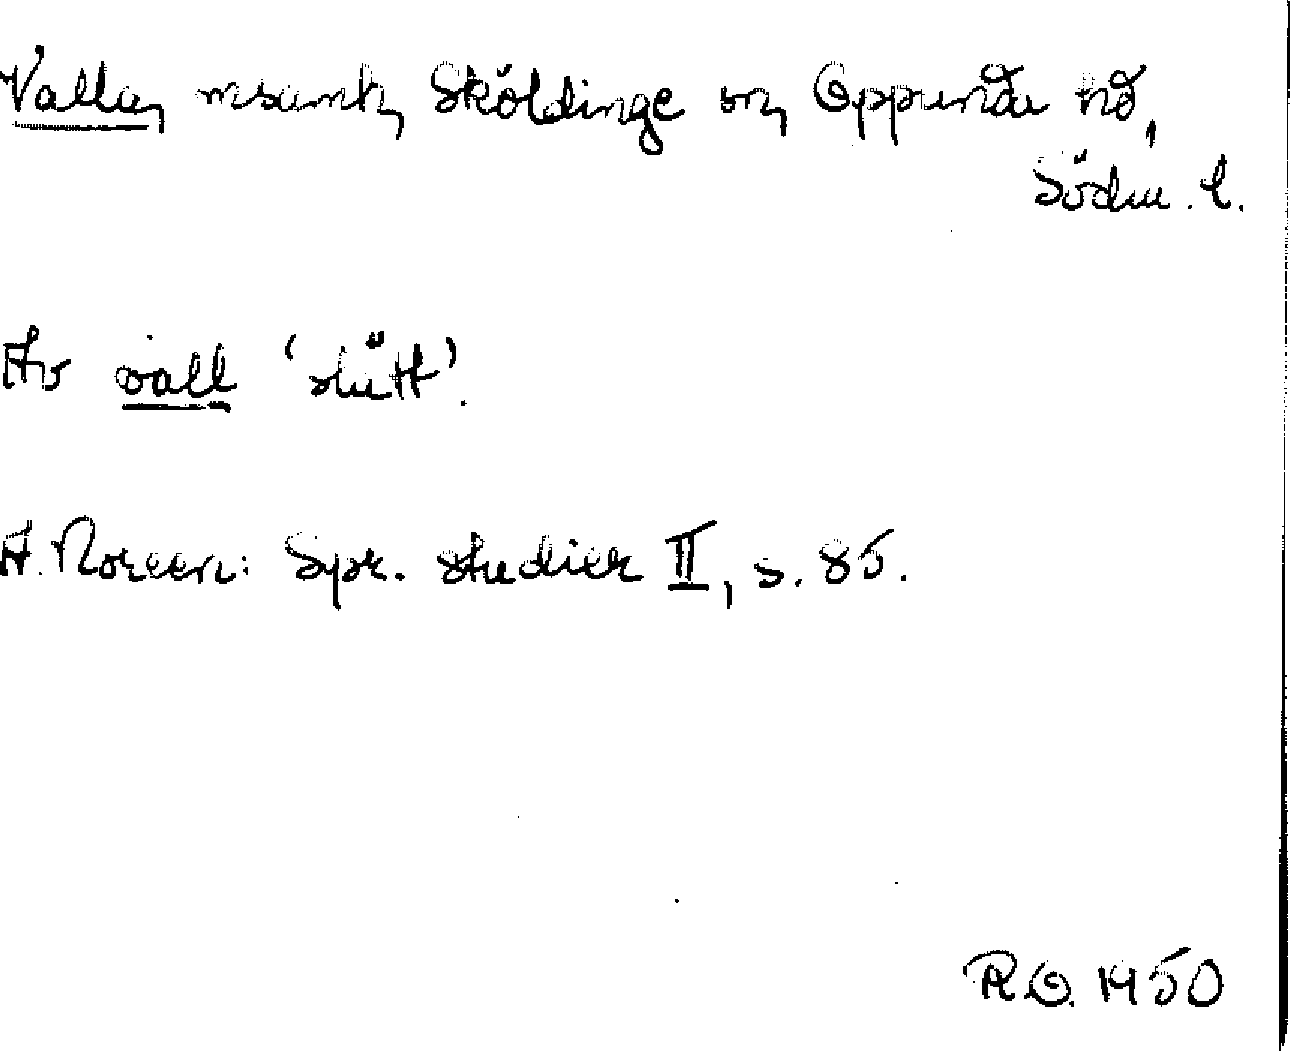 Valla, msamh, Sköldinge sn, Oppunda hd,
Södm. l.
Av vall 'slätt'.
A. Noreen: Spr. studier II, s. 85.
R O. 1950